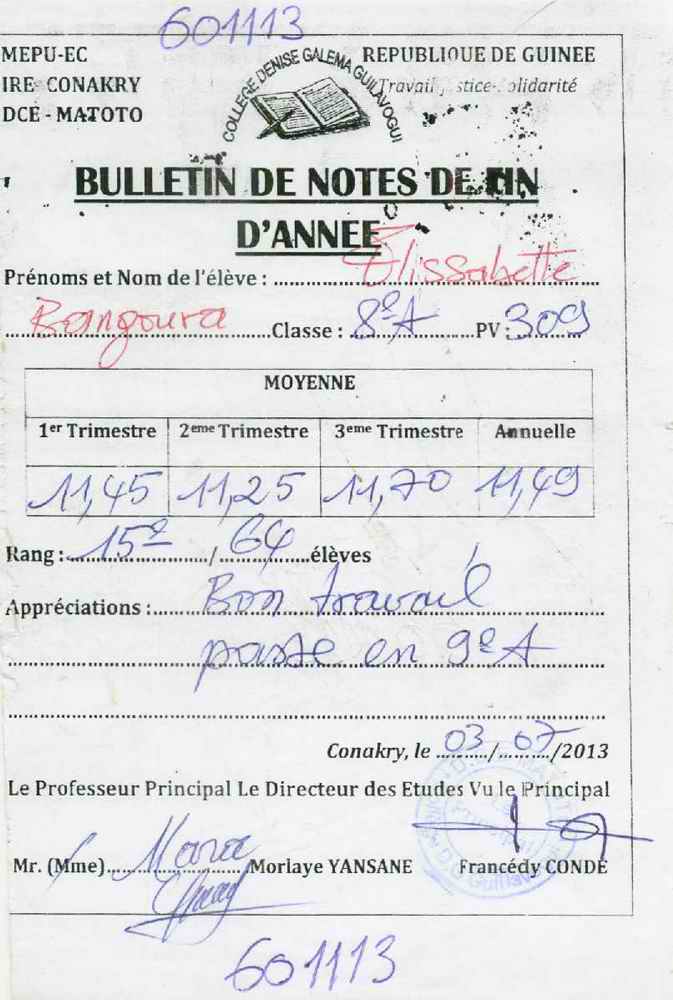 601113
MEPU-EC
REPUBLIQUE DE GUINEE
IRE- CONAKRY
Travail
stice-
olidarité
DCE - MATOTO
COLLEGE DENISE GALEMA GUILAVOGUI
BULLETIN DE NOTES DE FIN
D'ANNEE
Prénoms et Nom de l'élève : Elissabette
Bangoura Classe : 8e A PV : 309
MOYENNE
1er Trimestre 2eme Trimestre 3eme Trimestre Annuelle
11,45 11,25 11,70 11,49
Rang : 15e / 64 élèves
Appréciations : Bon travail
passe en 9e A
Conakry, le 03/07/2013
Le Professeur Principal Le Directeur des Etudes Vu le Principal
Mr. (Mme) Mara Morlaye YANSANE Francédy CONDE
601113